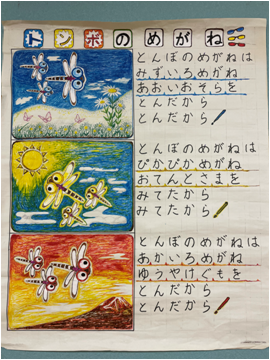 トンボのめがね
とんぼのめがねは
みずいろめがね
あおいおそらを
とんだから
とんだから
とんぼのめがねは
ぴかぴかめがね
おてんとさまを
みてたから
みてたから
とんぼのめがねは
あかいろめがね
ゆうやけぐもを
とんだから
とんだから